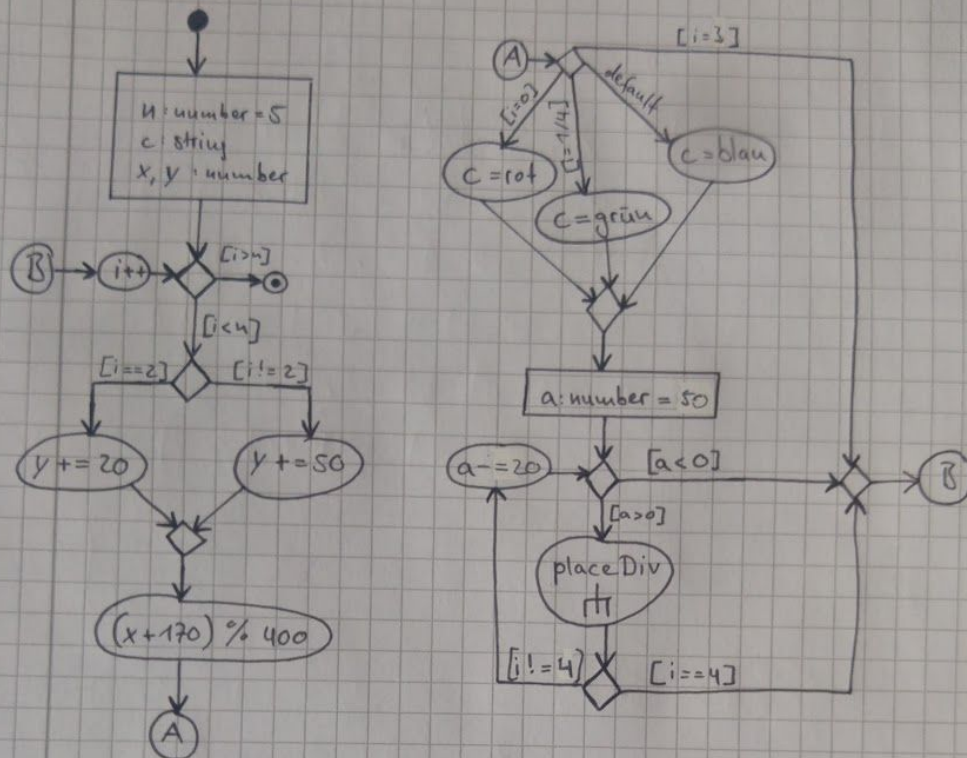 n : number = 5
c : string
x, y : number
B
i++
[i>n]
[i<n]
[i==2]
[i!=2]
y += 20
y += 50
(x+170) % 400
A
A
[i=3]
[i=0]
[i=1/4]
default
c = rot
c = grün
c = blau
a: number = 50
a -= 20
[a<0]
B
[a>0]
placeDiv
[i!=4]
[i==4]